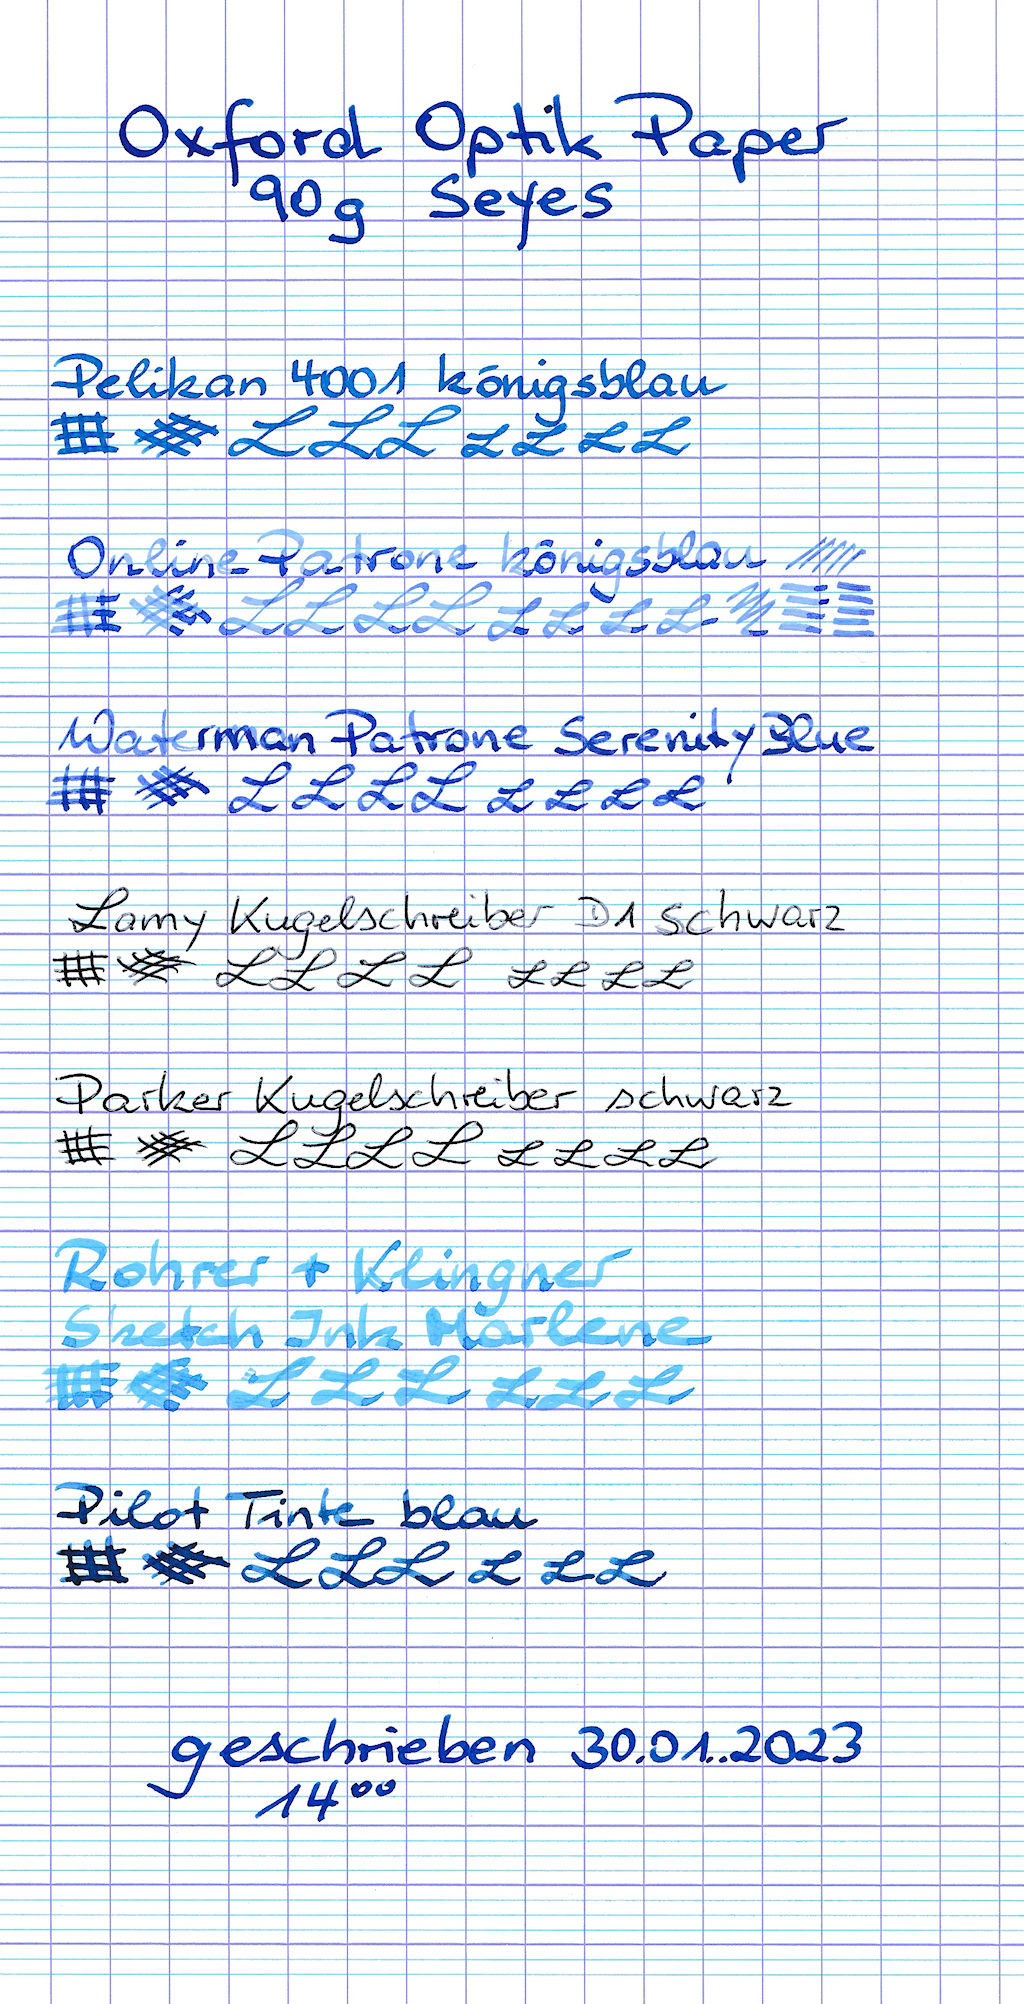 Oxford Optik Paper
90g Seyes
Pelikan 4001 königsblau
L L L L L L L
Online Patrone königsblau
L L L L L L L L
Waterman Patrone Serenity Blue
L L L L L L L L
Lamy Kugelschreiber D1 schwarz
L L L L L L L L
Parker Kugelschreiber schwarz
L L L L L L L L
Rohrer + Klingner
Sketch Ink Marlene
L L L L L L
Pilot Tinte blau
L L L L L L
geschrieben 30.01..2023
14⁰⁰